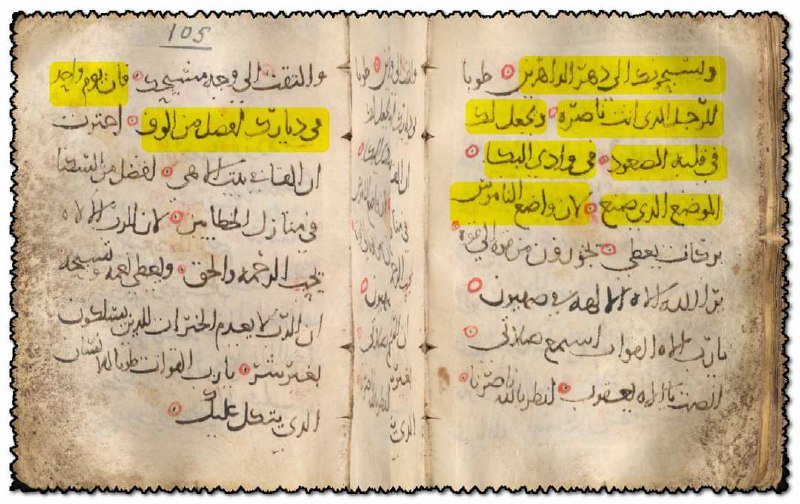 ويسبحونك الى دهر الداهرين طوبا
للرجل الذي انت ناصره ويجعل لك
في قلبه الصعود في وادي البكا
الموضع الذي صنع لان واضع الناموس
بركات يعطي يجوزون من قوه الي قوه
الله الاه الالهه في صهيون
يارب الاه القوات اسمع صلاتي
انصت يا الاه يعقوب انظر يا الله ناصرنا
105
والتفت الى وجه مسيحك فان يوم واحد
في ديارك افضل من الوف اخترت
ان القا في بيت الاهي افضل من السكنا
في منازل الخطايين لان الرب الالاه
يحب الرحمه والحق ويعطي نعمه وتسبحه
ان الرب لا يعدم الخيرات للذين يسلكون
بغير شر يارب القوات طوبا للانسان
الذي يتكل عليك